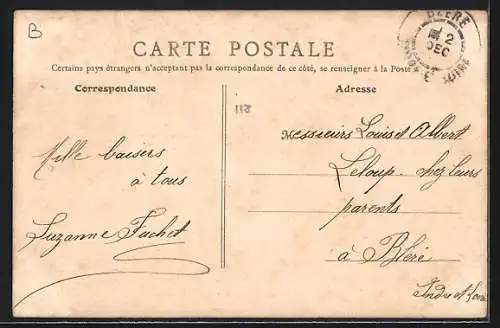 B
BLÉRÉ
2
DEC
CARTE POSTALE
Certains pays étrangers n'acceptant pas la correspondance de ce côté, se renseigner à la Poste
Correspondance
Adresse
118
Mille baisers
à tous
Suzanne Fachet
Messieurs Louis et Albert
Leloup chez leurs
parents
à Bléré
Indre et Loire